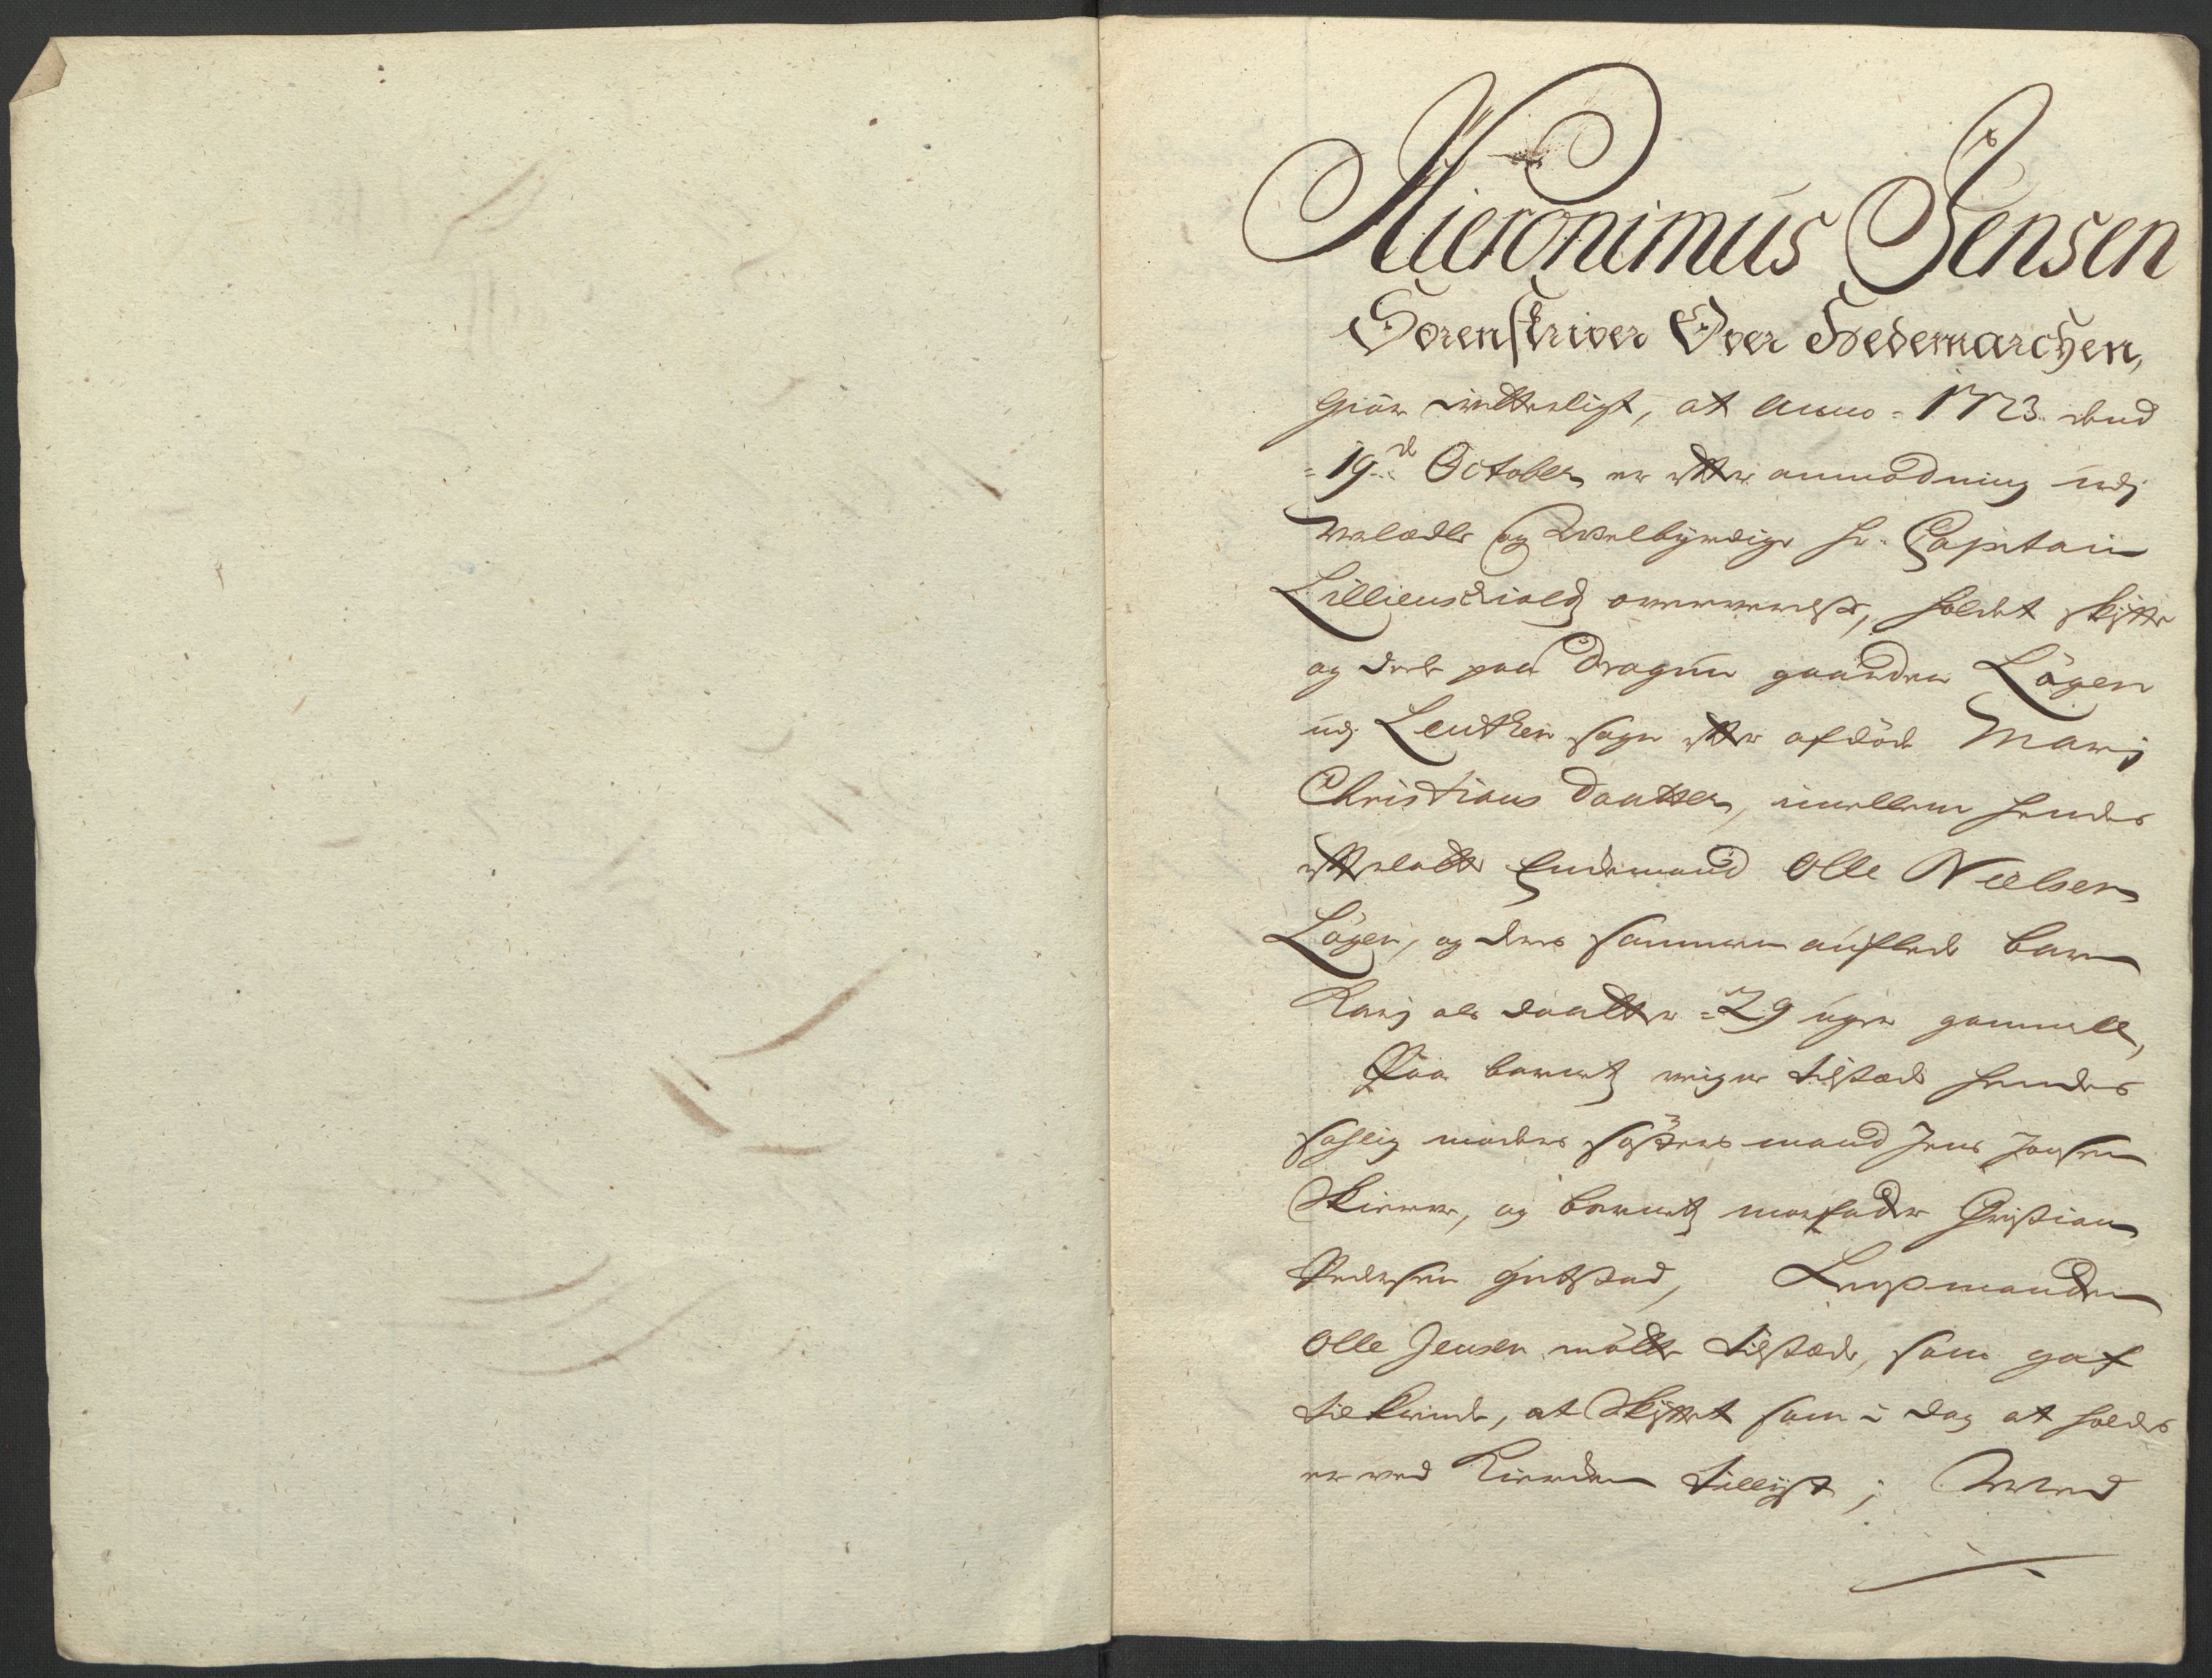 Hieronimus Jensen
Sorenskriver Over Hedemarchen,
Giör witterligt, at Anno 1723 dend
19de October er effter anmodning udj
Velædle og Welbyrdige Hr. Capitain
Lilliensckiold oververelse, holdet skiffte
og deele paa Dragun gaarden Lögen
udj Leuthen sogn effter afdöde Marj
Christians Daatter, imellem hendes
effterlatte Encke mand Olle Nielsen
Lögen, og deris sammen auflede barn
Karj als daatter 29 uger gammell,
Paa barnetz weigne tilstæde hendes
sahlig moders söster mand Jens
Skierer, og barnetz morfader Christian
Pedersen Gutstad, Lensmanden
Olle Jensen mötte tilstæde, som gaf
tilkiende, at Skifftet som i dag at holdes
er ved Kiercken tillyst; Hvad